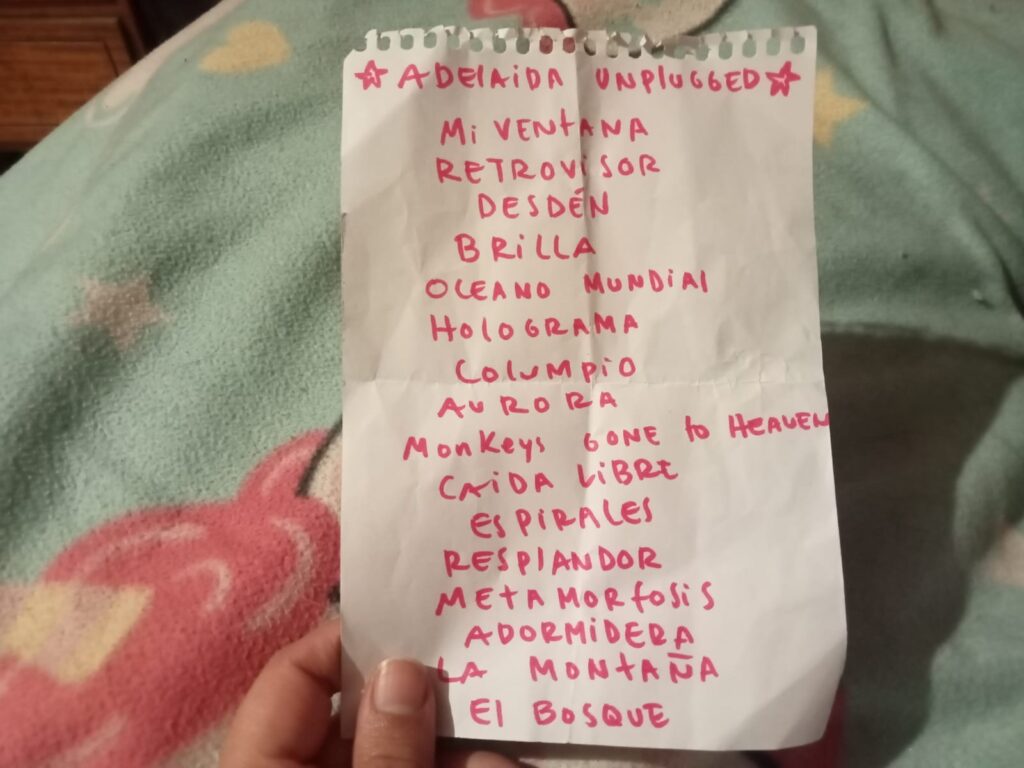 ☆ ADELAIDA UNPLUGGED ☆
Mi VENTANA
RETROViSOR
DESDÉN
BRiLLA
OCEANO MUNDIAl
HOLOGRAMA
COLUMPiO
AURORA
MONKeyS GONE to HEAVEN
CAiDA LiBRE
ESPIRALES
RESPLANDOR
METAMORfOSiS
ADORMiDERA
LA MONtAÑA
El BOSQUE